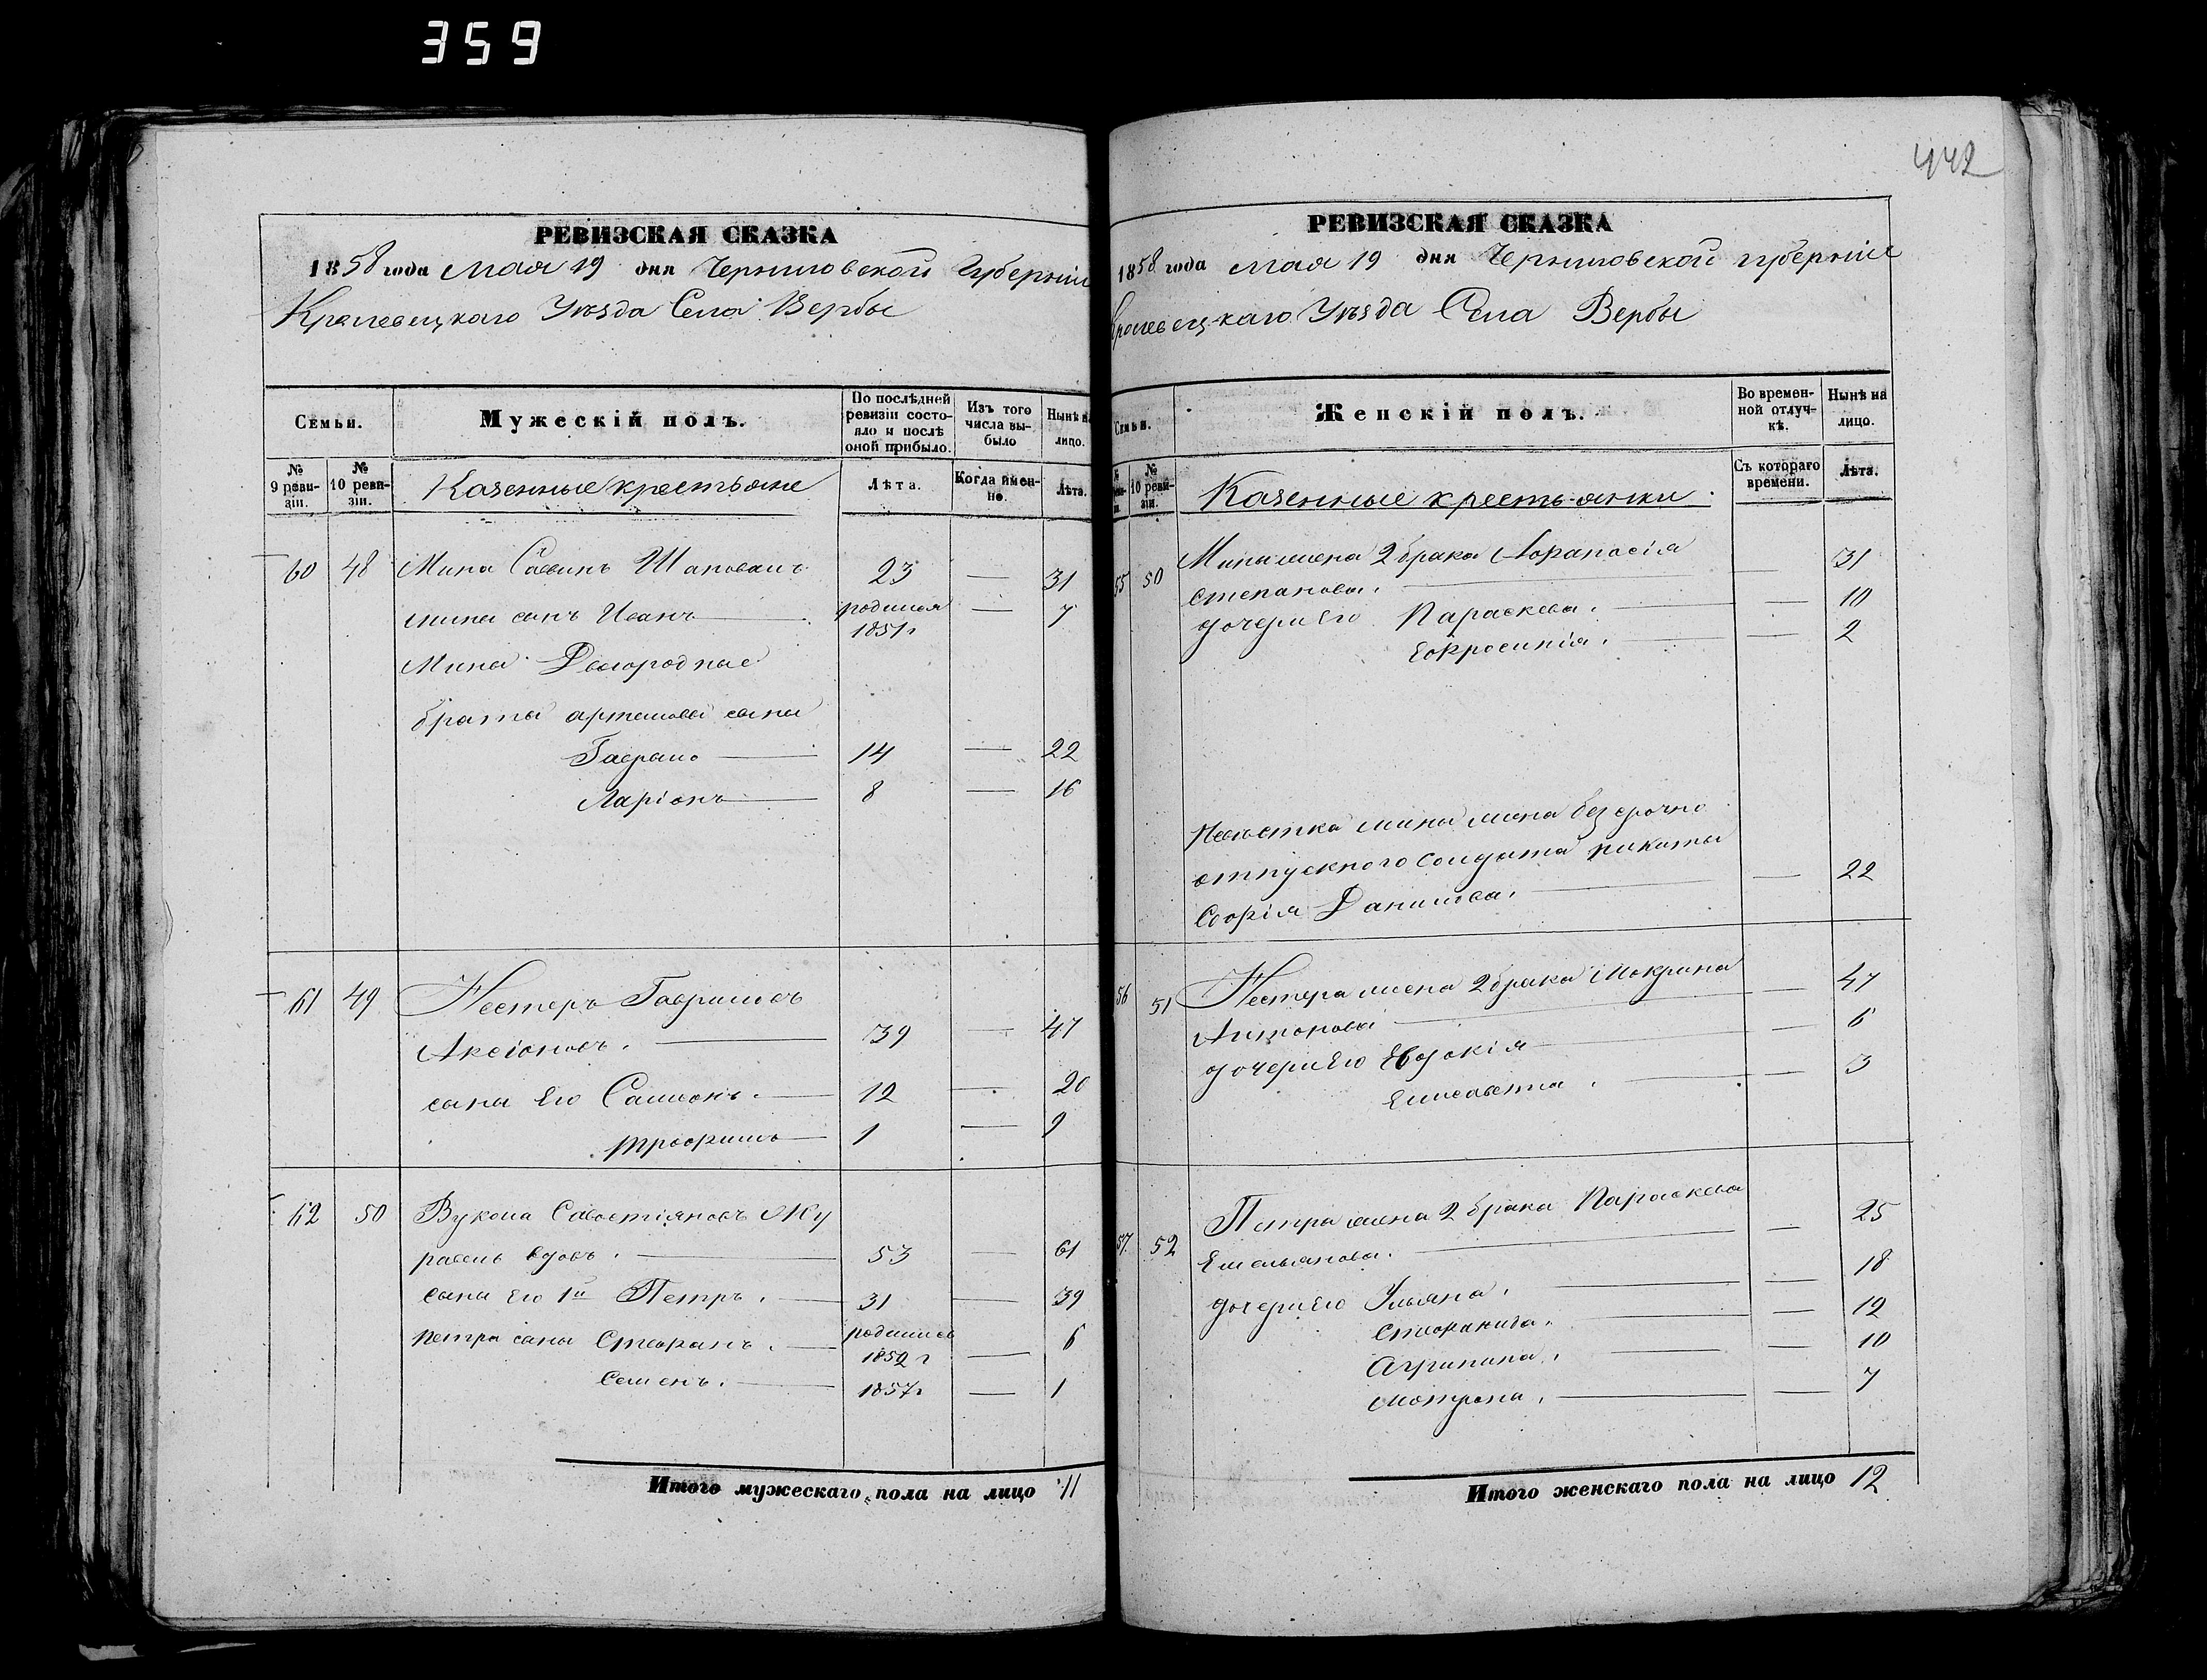 359
442
РЕВИЗСКАЯ СКАЗКА
1858 года мая 19 дня Черниговской Губерніи
Кролевецкаго Уѣзда Села Вербы
Семьи.
Мужескій полъ.
По послѣдней ревизіи состояло и послѣ оной прибыло.
Изъ того числа выбыло
Нынѣ на лицо.
№ 9 ревизіи.
№ 10 ревизіи.
Казенные крестьяне
Лѣта.
Когда именно.
Лѣта.
60 48 Мина Саввинъ Шаповалъ 23 — 31
мины сынъ Иванъ родился 1851г — 7
Мина Двоюродные
братья артемовы сыны
Гаврило 14 — 22
Ларіонъ 8 — 16
61 49 Нестеръ Гавриловъ
Аксіоновъ. 39 — 47
сыны Его Самсонъ. 12 — 20
трофимъ 1 — 9
62 50 Вукола Савостіяновъ Жу
равель вдовъ. 53 — 61
сыны его 1й Петръ. 31 — 39
Петра сыны Стефанъ. родились 1852 г — 6
Семенъ. 1857г — 1
Итого мужескаго пола на лицо 11
РЕВИЗСКАЯ СКАЗКА
1858 года мая 19 дня Черниговской губерніи
Кролевецкаго Уѣзда Села Вербы
Семьи.
Женскій полъ.
Во временной отлучкѣ.
Нынѣ на лицо.
№ 10 ревизіи.
Казенные крестьянки.
Съ котораго времени.
Лѣта.
55 50 Мины жена 2 брака Афанасія
Степанова. — 31
дочери Его Параскева. — 10
Евфросинія. — 2
Невѣстка мины жена безсрочно
отпускного солдата никиты
Софія Данилова. — 22
56 51 Нестера жена 2 брака Мокрина
Антонова — 47
дочери Его Евдокія — 6
Елисавета. — 3
57. 52 Петра жена 2 брака Параскева
Емельянова. — 25
дочери Его Ульяна. — 18
Стефанида. — 12
Агрипина. — 10
Мотрона. — 7
Итого женскаго пола на лицо 12